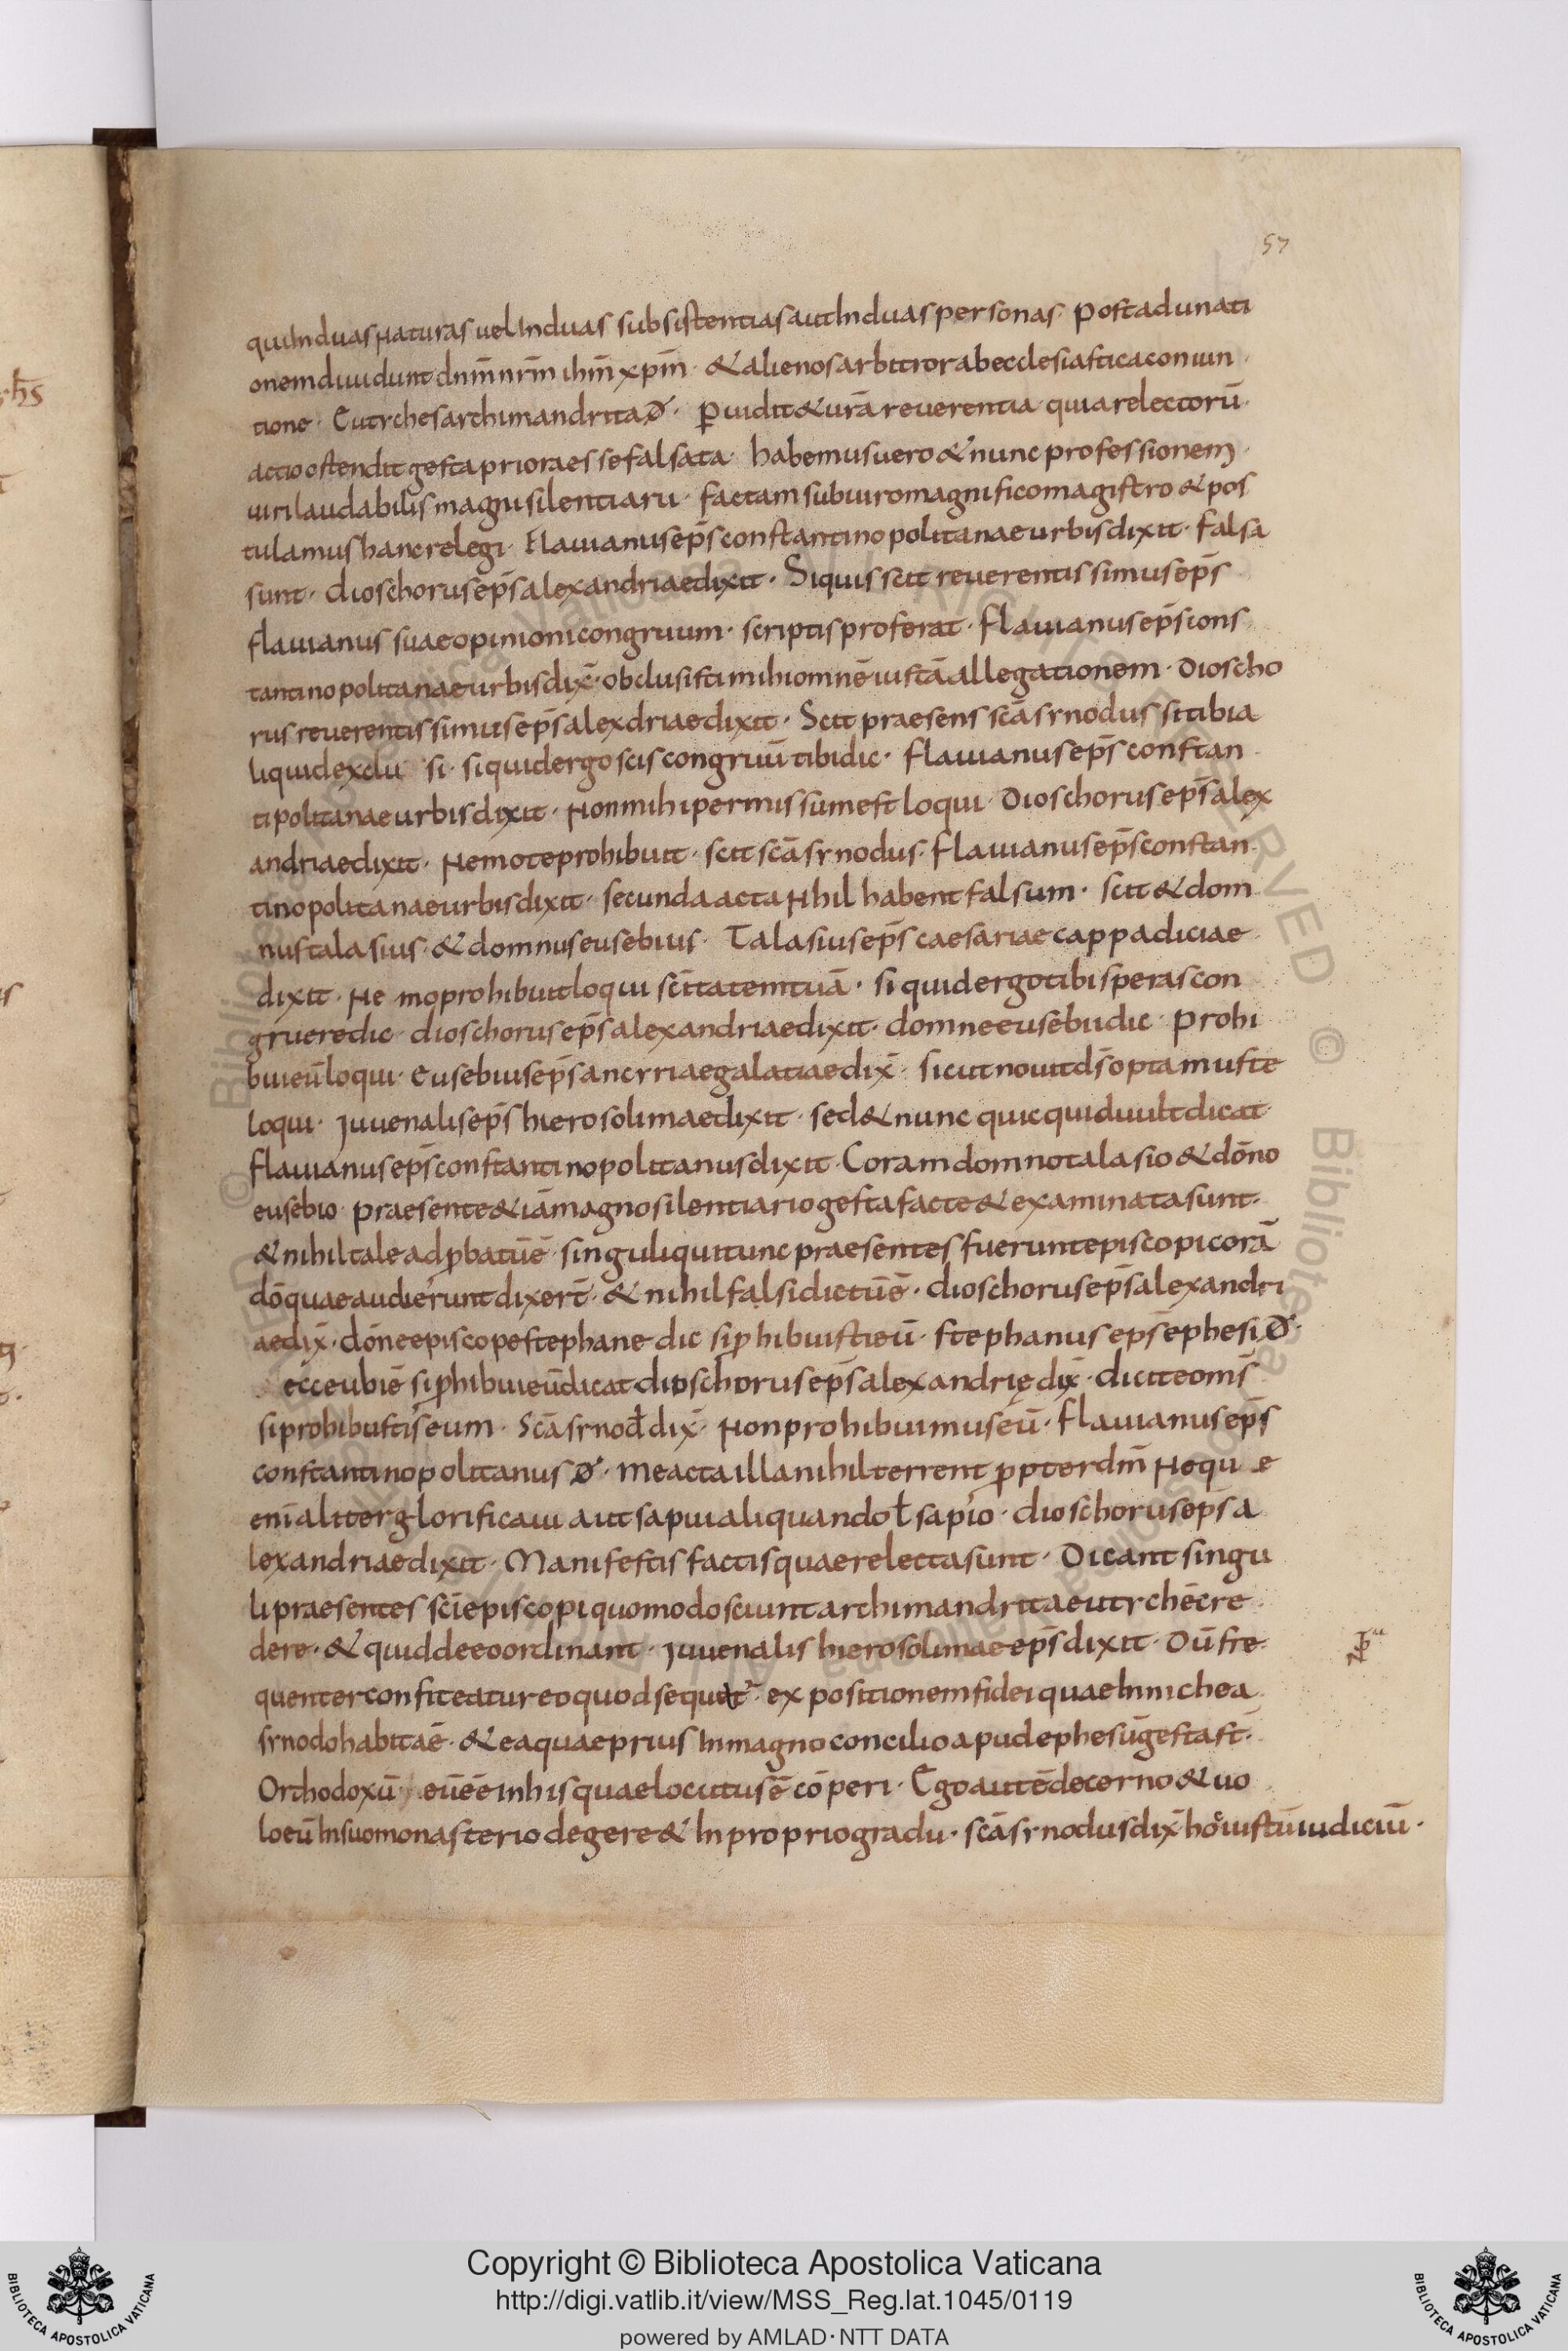 57
qui In duas naturas uel In duas subsistentias aut In duas personas · post adunati
onem diuidunt dnm̄ nrm̄ ihm̄ xpm̄ · & alienos arbitror ab ecclesiastica coniun
tione · Eutyches archimandrita đ · p̱uidit & urā reuerentia quia relectorū ·
actio ostendit gesta priora esse falsata · habemus uero & nunc professionem ·
uiri laudabilis magni silentiarii · factam sub uiro magnifico magistro & pos
tulamus hanc relegi · Flauianus ep̄s constantinopolitanae urbis dixit · falsa
sunt · dioschorus ep̄s alexandriae dixit · Si quis scit reuerentissimus ep̄s
flauianus suae opinioni congruum · scriptis proferat · flauianus ep̄s cons
tantinopolitanae urbis dix̄ · obclusisti mihi omnē iustā allegationem · Dioscho
rus reuerentissimus ep̄s alexdriae dixit · Scit praesens scā synodus si tibi a
liquid exclu si · si quid ergo scis congruū tibi dic · flauianus ep̄s constan
tipolitanae urbis dixit · Non mihi permissum est loqui · Dioschorus ep̄s alex
andriae dixit · Nemo te prohibuit · scit scā synodus · flauianus ep̄s constan
tinopolitanae urbis dixit · secunda acta Nihil habent falsum · scit & dom
nus talasius · & domnus eusebius · Talasius ep̄s caesariae cappadiciae
dixit · Ne mo prohibuit loqui scītatem tuā · si quid ergo tibi speras con
gruere dic · dioschorus ep̄s alexandriae dixit · domne eusebii dic · Prohi
bui eū loqui · eusebius ep̄s ancyriae galatiae dix̄ · sicut nouit d̄s optamus te
loqui · Juuenalis ep̄s hierosolimae dixit · sed & nunc quicquid uult dicat
flauianus ep̄s constantinopolitanus dixit · Coram domno talasio & dōno
eusebio · praesente & iā magno silentiario gesta facte & examinata sunt ·
& nihil tale adp̱batū ē · singuli qui tunc praesentes fuerunt episcopi corā
dō quae audierunt dixer̄t · & nihil falsi dictū ē · dioschorus ep̄s alexandri
ae dix̄ · dōne episcope stephane dic si p̱hibuisti eū · stephanus eps ephesi đ ·
ecce ubi ē si p̱hibui eū dicat dioschorus ep̄s alexandrię dix̄ · dicite om̄s
si prohibuistis eum · Scā synod̄ dix̄ · Non prohibuimus eū · flauianus ep̄s
constantinopolitanus đ · me acta illa nihil terrent p̱pter dm̄ Nequ e
enī aliter glorificaui aut sapui aliquando ł sapio · dioschorus ep̄s a
lexandriae dixit · Manifestis factis quae relecta sunt · Dicant singu
li praesentes sc̄i episcopi quomodo sciunt archimandrita eutychē cre
dere · & quid de eo ordinant · Juuenalis hierosolimae ep̄s dixit · Dū fre
quenter confiteatur eo quod sequit' · ex positionem fidei quae In nichea
synodo habita ē · & ea quae prius In magno concilio apud ephesū gesta st̄ ·
Orthodoxū eū eē in his quae locutus ē cōperi · Ego autē decerno & uo
lo eū In suo monasterio degere & In proprio gradu · scā synodus dix̄ hoc iustū iudiciū ·
Copyright © Biblioteca Apostolica Vaticana
http://digi.vatlib.it/view/MSS_Reg.lat.1045/0119
powered by AMLAD · NTT DATA